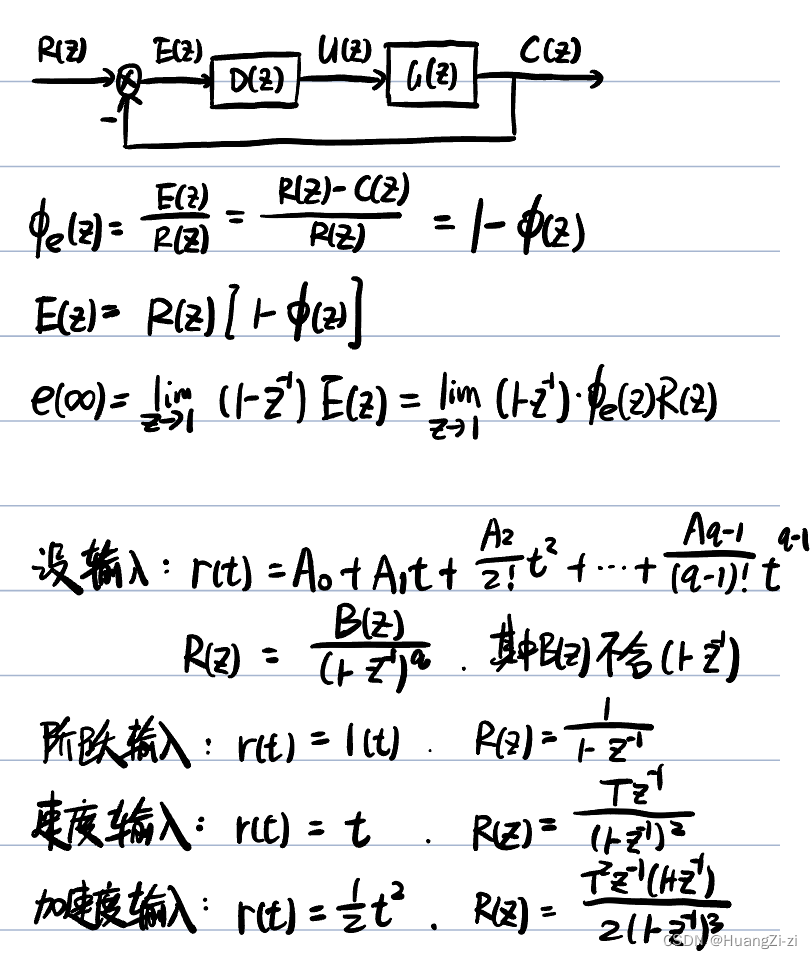 R(z) E(z) D(z) U(z) G(z) C(z)
-
ϕₑ(z) = E(z)/R(z) = (R(z) - C(z))/R(z) = 1 - ϕ(z)
E(z) = R(z) [1 - ϕ(z)]
e(∞) = lim_{z→1} (1-z⁻¹) E(z) = lim_{z→1} (1-z⁻¹)·ϕₑ(z)R(z)
设输入: r(t) = A₀ + A₁t + A₂/2! t² + ... + A_{q-1}/(q-1)! t^{q-1}
R(z) = B(z)/(1-z⁻¹)^q . 其中B(z)不含(1-z⁻¹)
阶跃输入: r(t) = 1(t) . R(z) = 1/(1-z⁻¹)
速度输入: r(t) = t . R(z) = Tz⁻¹/(1-z⁻¹)²
加速度输入: r(t) = 1/2 t² . R(z) = T²z⁻¹(1+z⁻¹)/2(1-z⁻¹)³
CSDN @HuangZi-zi